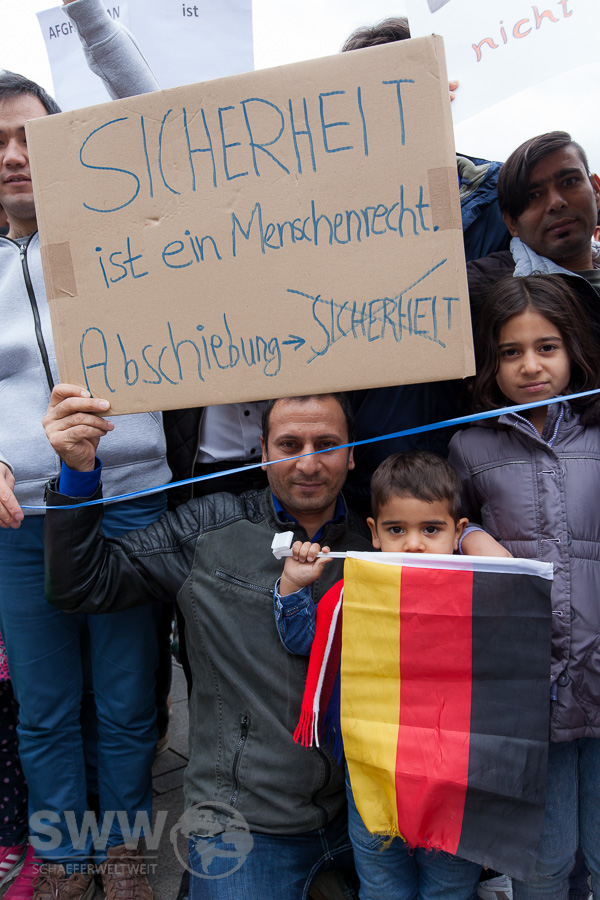 AFGHANISTAN ist
nicht
SICHERHEIT
ist ein Menschenrecht.
Abschiebung → SICHERHEIT
SWW
SCHAEFERWELTWEIT